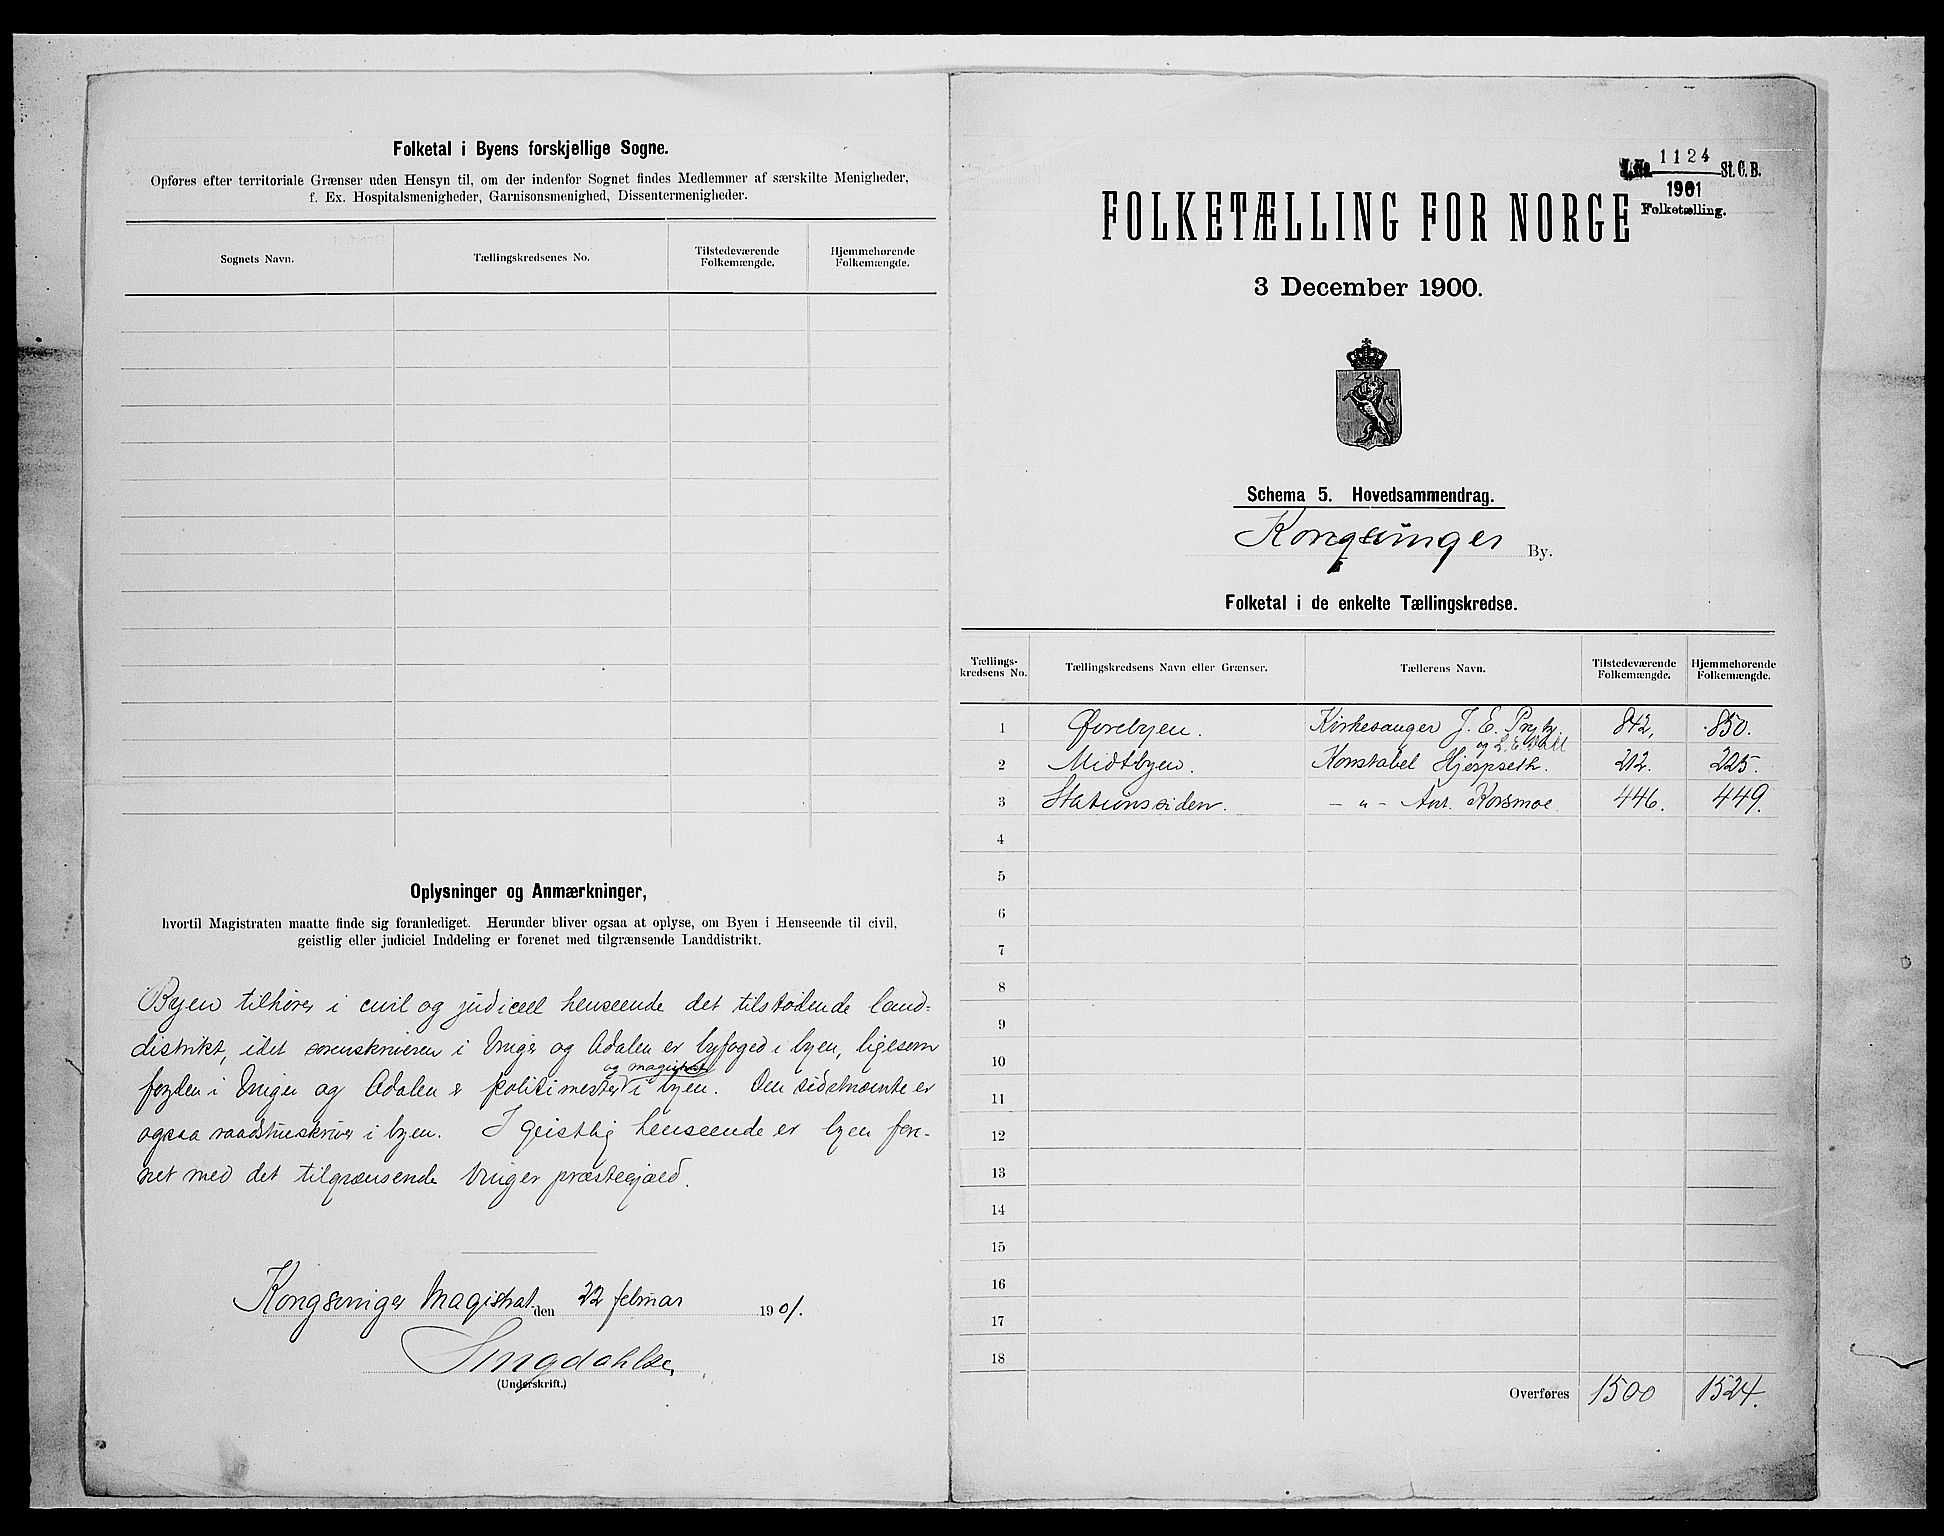 Folketal i Byens forskjellige Sogne.
Opføres efter territoriale Grænser uden Hensyn til, om der indenfor Sognet findes Medlemmer af særskilte Menigheder,
f. Ex. Hospitalsmenigheder, Garnisonsmenighed, Dissentermenigheder.
Sognets Navn. Tællingskredsenes No. Tilstedeværende Folkemængde. Hjemmehørende Folkemængde.
Oplysninger og Anmærkninger,
hvortil Magistraten maatte finde sig foranlediget. Herunder bliver ogsaa at oplyse, om Byen i Henseende til civil,
geistlig eller judiciel Inddeling er forenet med tilgrænsende Landdistrikt.
Byen tilhører i civil og judiciel henseende det tilstødende land-
distrikt, idet sorenskriveren i Vinger og Odalen er byfoged i byen, ligesom
fogden i Vinger og Odalen er politimester og magistrat i byen. Den sidstnævnte er
ogsaa raadstueskriver i byen. I geistlig henseende er byen fore-
net med det tilgrænsende Vinger præstegjæld.
Kongsvinger Magistrat den 22 februar 1901.
(Underskrift.)
No. 1124 St. C. B.
1901
Folketælling.
FOLKETÆLLING FOR NORGE
3 December 1900.
Schema 5. Hovedsammendrag.
Kongsvinger By.
Folketal i de enkelte Tællingskredse.
Tællings-kredsens No. Tællingskredsens Navn eller Grænser. Tællerens Navn. Tilstedeværende Folkemængde. Hjemmehørende Folkemængde.
1 Øvrebyen. Kirkesanger J. E. 842, 850.
2 Midtbyen. Konstabel Hjerpseth. 212. 225.
3 Stationssiden. – " – Ant. Korsmoe. 446. 449.
4
5
6
7
8
9
10
11
12
13
14
15
16
17
18
Overføres 1500 1524.